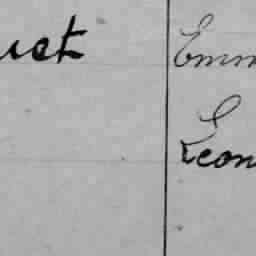 uet Emm
Leon